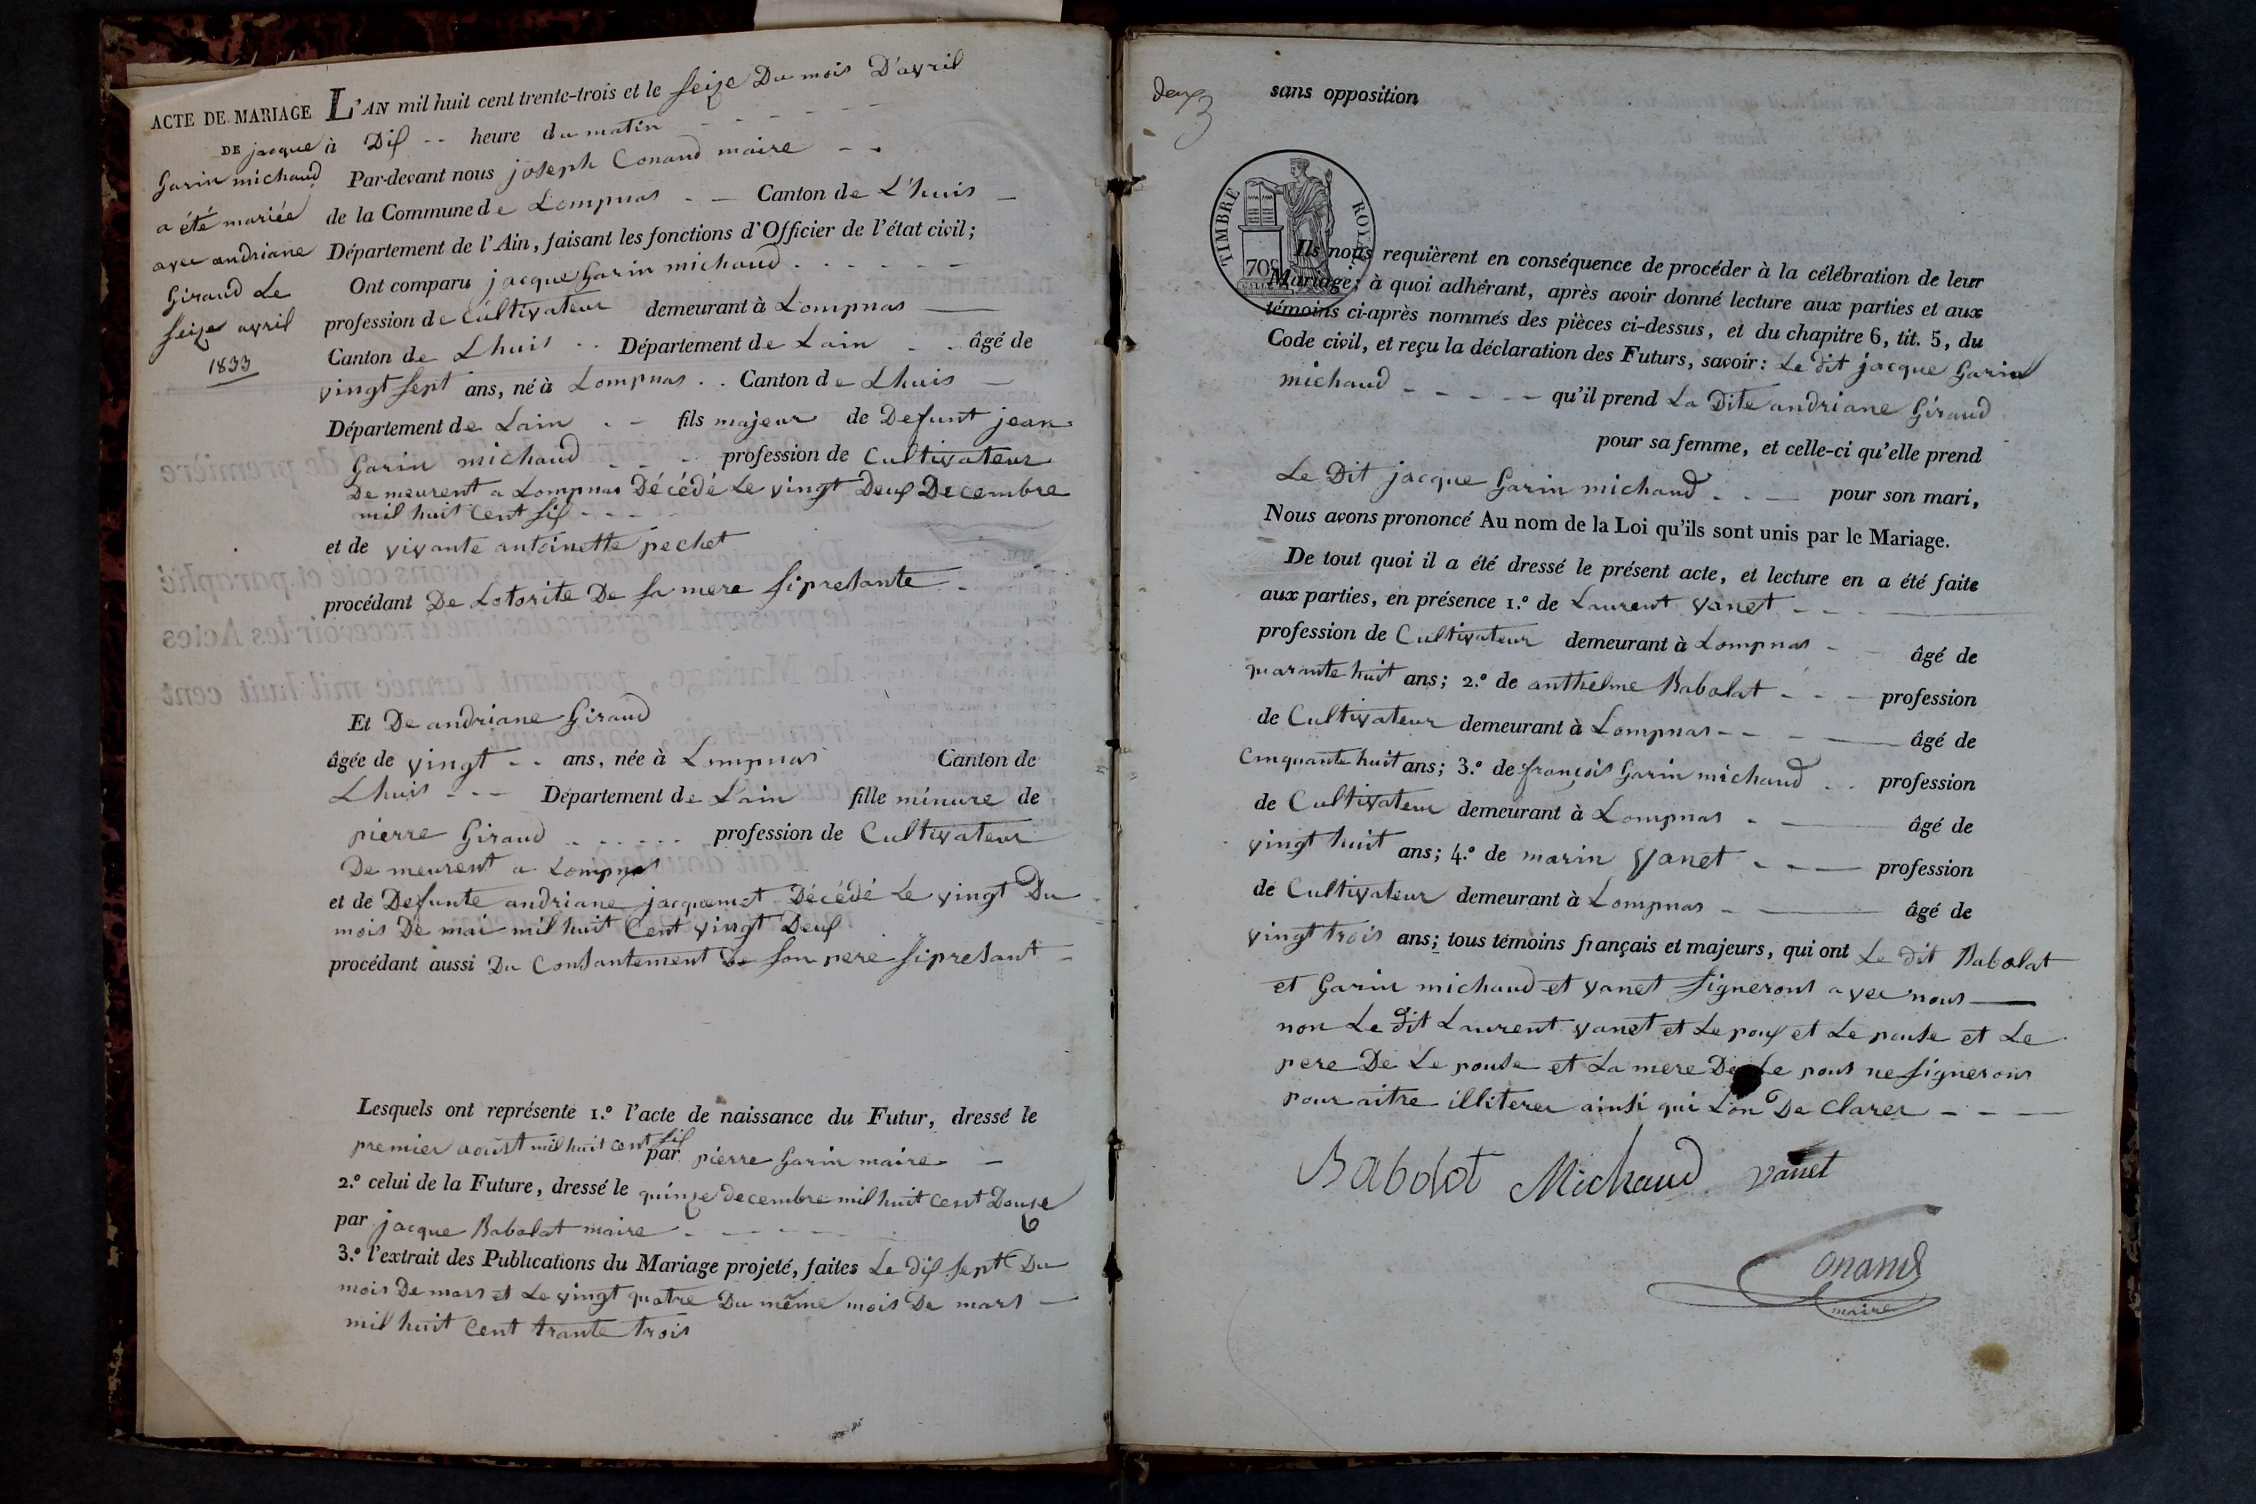 ACTE DE MARIAGE
DE jacque
Garin michaud
a été mariée
avec andriane
Giraud Le
seize avril
1833
L'AN mil huit cent trente-trois et le seize Du mois D'avril
à Dix heure du matin
Par-devant nous joseph Conand maire
de la Commune de Lompnas Canton de L'huis
Département de l'Ain, faisant les fonctions d'Officier de l'état civil;
Ont comparu jacque Garin michaud
profession de Cultivateur demeurant à Lompnas
Canton de Lhuis Département de Lain âgé de
vingt sept ans, né à Lompnas Canton de Lhuis
Département de Lain fils majeur de Defunt jean
Garin michaud profession de Cultivateur
De meurent a Lompnas Décédé Le vingt Deux Decembre
mil huit Cent six
et de vivante antoinette pechet
procédant De Lotorite De sa mere si presante
Et De andriane Giraud
âgée de vingt ans, née à Lompnas Canton de
Lhuis Département de Lain fille minure de
pierre Giraud profession de Cultivateur
De meurent a Lompnas
et de Defunte andriane jacquemet Décédé Le vingt Du
mois De mai mil huit Cent vingt Deux
procédant aussi Du Consantement De son pere si presant
Lesquels ont représente 1.º l'acte de naissance du Futur, dressé le
premier aoust mil huit cent six par pierre Garin maire
2.º celui de la Future, dressé le quinze decembre mil huit Cent Douse
par jacque Babolat maire
3.º l'extrait des Publications du Mariage projeté, faites Le dix sept Du
mois De mars et Le vingt quatre Du même mois De mars
mil huit Cent trante trois
deux
sans opposition
TIMBRE ROYAL
70
Ils nous requièrent en conséquence de procéder à la célébration de leur
Mariage; à quoi adhérant, après avoir donné lecture aux parties et aux
témoins ci-après nommés des pièces ci-dessus, et du chapitre 6, tit. 5, du
Code civil, et reçu la déclaration des Futurs, savoir: Le dit jacque Garin
michaud qu'il prend La Dite andriane Giraud
pour sa femme, et celle-ci qu'elle prend
Le Dit jacque Garin michaud pour son mari,
Nous avons prononcé Au nom de la Loi qu'ils sont unis par le Mariage.
De tout quoi il a été dressé le présent acte, et lecture en a été faite
aux parties, en présence 1.º de Laurent vanet
profession de Cultivateur demeurant à Lompnas âgé de
quarante huit ans; 2.º de anthelme Babolat profession
de Cultivateur demeurant à Lompnas âgé de
Cinquante huit ans; 3.º de françois Garin michaud profession
de Cultivateur demeurant à Lompnas âgé de
vingt huit ans; 4.º de marin vanet profession
de Cultivateur demeurant à Lompnas âgé de
vingt trois ans; tous témoins français et majeurs, qui ont Le dit Babolat
et Garin michaud et vanet signeront avec nous
non Le dit Laurent vanet et Le poux et Le pouse et Le
pere De Le pouse et La mere De Le pous ne signerons
pour aitre illiterer ainsi qui L'on De Clarer
Babolat Michaud vanet
Conand
maire